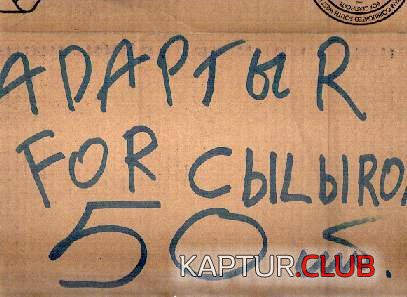 ADAPTЫR
FOR CЫLЫRO
50
KAPTUR.CLUB